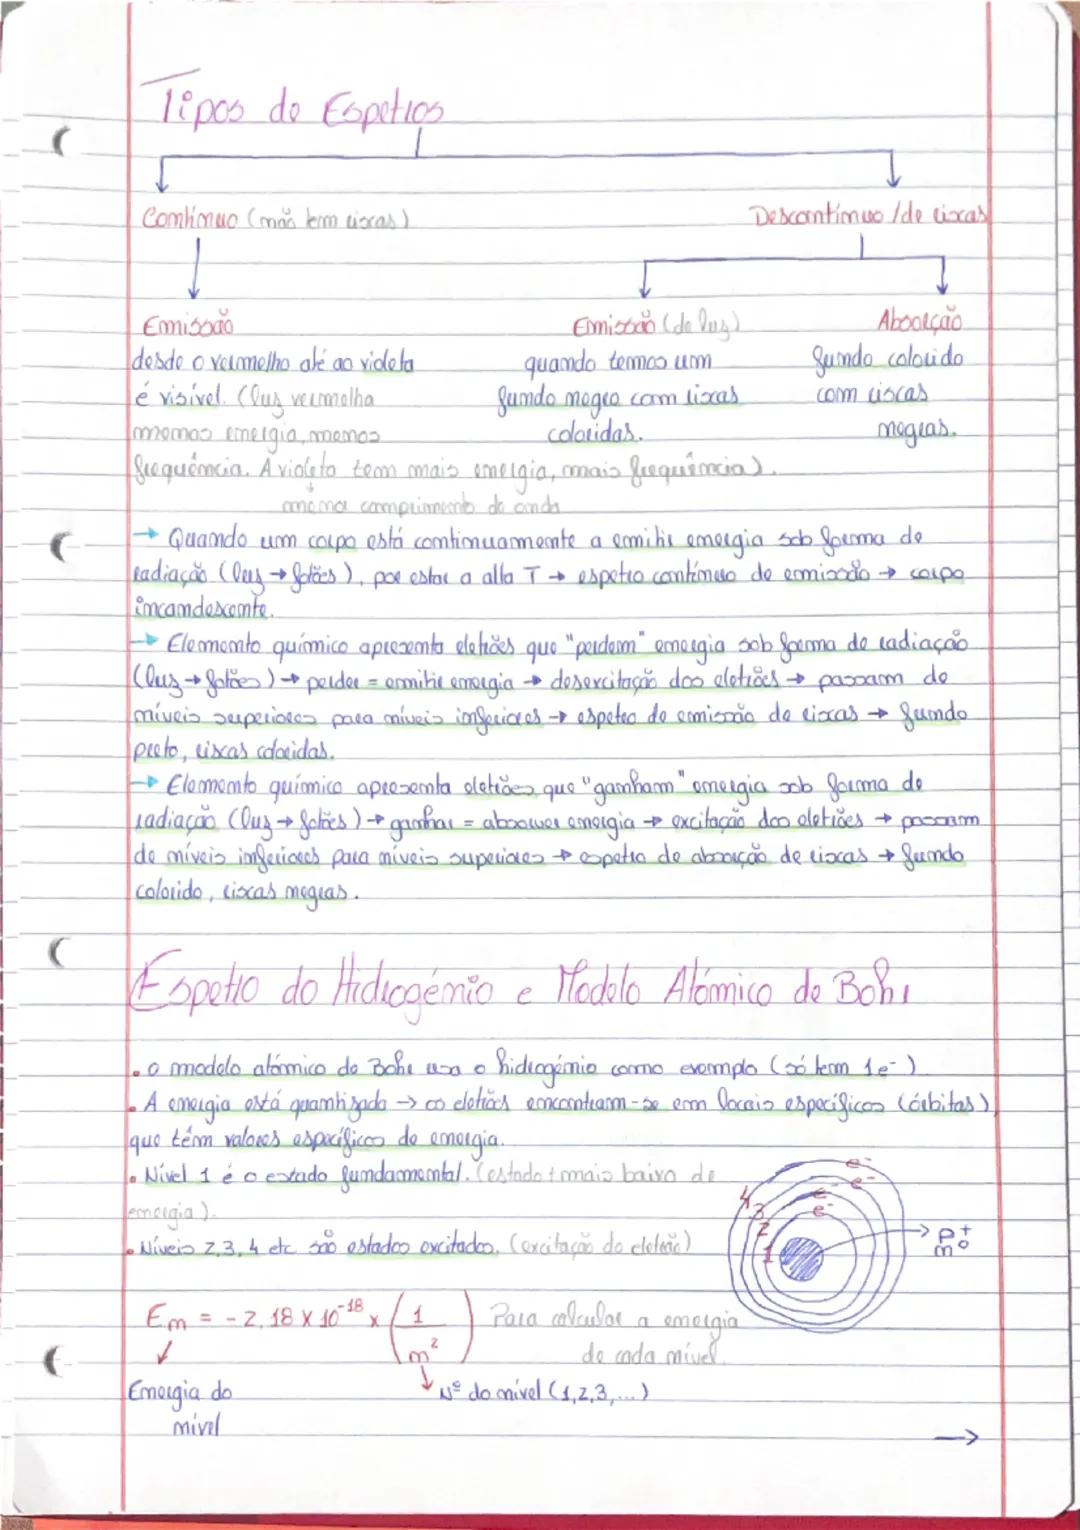 Tipos de Espetros
Contínuo (não tem riscas)
Descontínuo / de riscas
Emissão
desde o vermelho até ao violeta
é visível. (luz vermelha
menos energia, menos
frequência. A violeta tem mais energia, mais frequência).
menor comprimento de onda
Emissão (de luz)
quando temos um
fundo negro com riscas
coloridas.
Absorção
fundo colorido
com riscas
negras.
→ Quando um corpo está continuamente a emitir energia sob forma de
radiação (luz → fotões), por estar a alta T → espetro contínuo de emissão → corpo
incandescente.
→ Elemento químico apresenta eletrões que "perdem" energia sob forma de radiação
(luz → fotões) → perder = emitir energia → desexcitação dos eletrões → passam de
níveis superiores para níveis inferiores → espetro de emissão de riscas → fundo
preto, riscas coloridas.
→ Elemento químico apresenta eletrões que "ganham" energia sob forma de
radiação (luz → fotões) → ganhar = absorver energia → excitação dos eletrões → passam
de níveis inferiores para níveis superiores → espetro de absorção de riscas → fundo
colorido, riscas negras.
Espetro do Hidrogénio e Modelo Atómico de Bohr
• o modelo atómico de Bohr usa o hidrogénio como exemplo (só tem 1e⁻)
• A energia está quantizada → os eletrões encontram-se em locais específicos (órbitas)
que têm valores específicos de energia.
• Nível 1 é o estado fundamental. (estado + mais baixo de
energia).
• Níveis 2,3,4 etc são estados excitados. (excitação do eletrão)
e⁻
e⁻
e⁻
e⁻
4
3
2
1
p⁺
n⁰
En = - 2,18 x 10⁻¹⁸ x (1/n²)
Para calcular a energia
de cada nível.
Energia do
nível
Nº do nível (1,2,3,...)
→